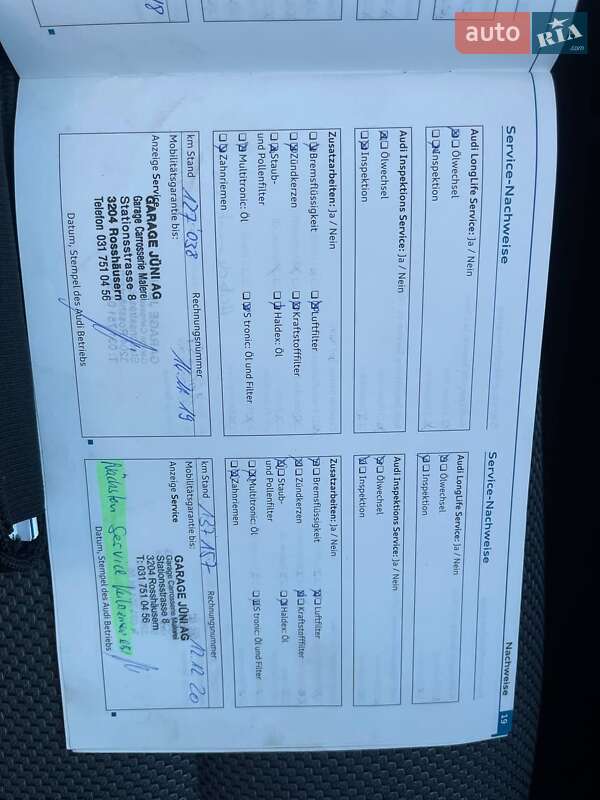 18
auto RIA.com
Service-Nachweise
Audi LongLife Service: Ja / Nein
Ölwechsel
Inspektion
Audi Inspektions Service: Ja / Nein
Ölwechsel
Inspektion
Zusatzarbeiten: Ja / Nein
Bremsflüssigkeit
Luftfilter
Zündkerzen
Kraftstofffilter
Staub-
und Pollenfilter
Haldex: Öl
Multitronic: Öl
S tronic: Öl und Filter
Zahnriemen
km Stand 127'038
Rechnungsnummer
Mobilitätsgarantie bis:
Anzeige Service
GARAGE JÜNI AG
Garage Carrosserie Malerei
Stationsstrasse 8
3204 Rosshäusern
Telefon 031 751 04 56
Datum, Stempel des Audi Betriebs
Nachweise
19
Service-Nachweise
Audi LongLife Service: Ja / Nein
Ölwechsel
Inspektion
Audi Inspektions Service: Ja / Nein
Ölwechsel
Inspektion
Zusatzarbeiten: Ja / Nein
Bremsflüssigkeit
Luftfilter
Zündkerzen
Kraftstofffilter
Staub-
und Pollenfilter
Haldex: Öl
Multitronic: Öl
S tronic: Öl und Filter
Zahnriemen
km Stand 137'157
Rechnungsnummer
Mobilitätsgarantie bis:
Anzeige Service
GARAGE JÜNI AG
Garage Carrosserie Malerei
Stationsstrasse 8
3204 Rosshäusern
T: 031 751 04 56
12.12.20
Nächsten Service
Datum, Stempel des Audi Betriebs